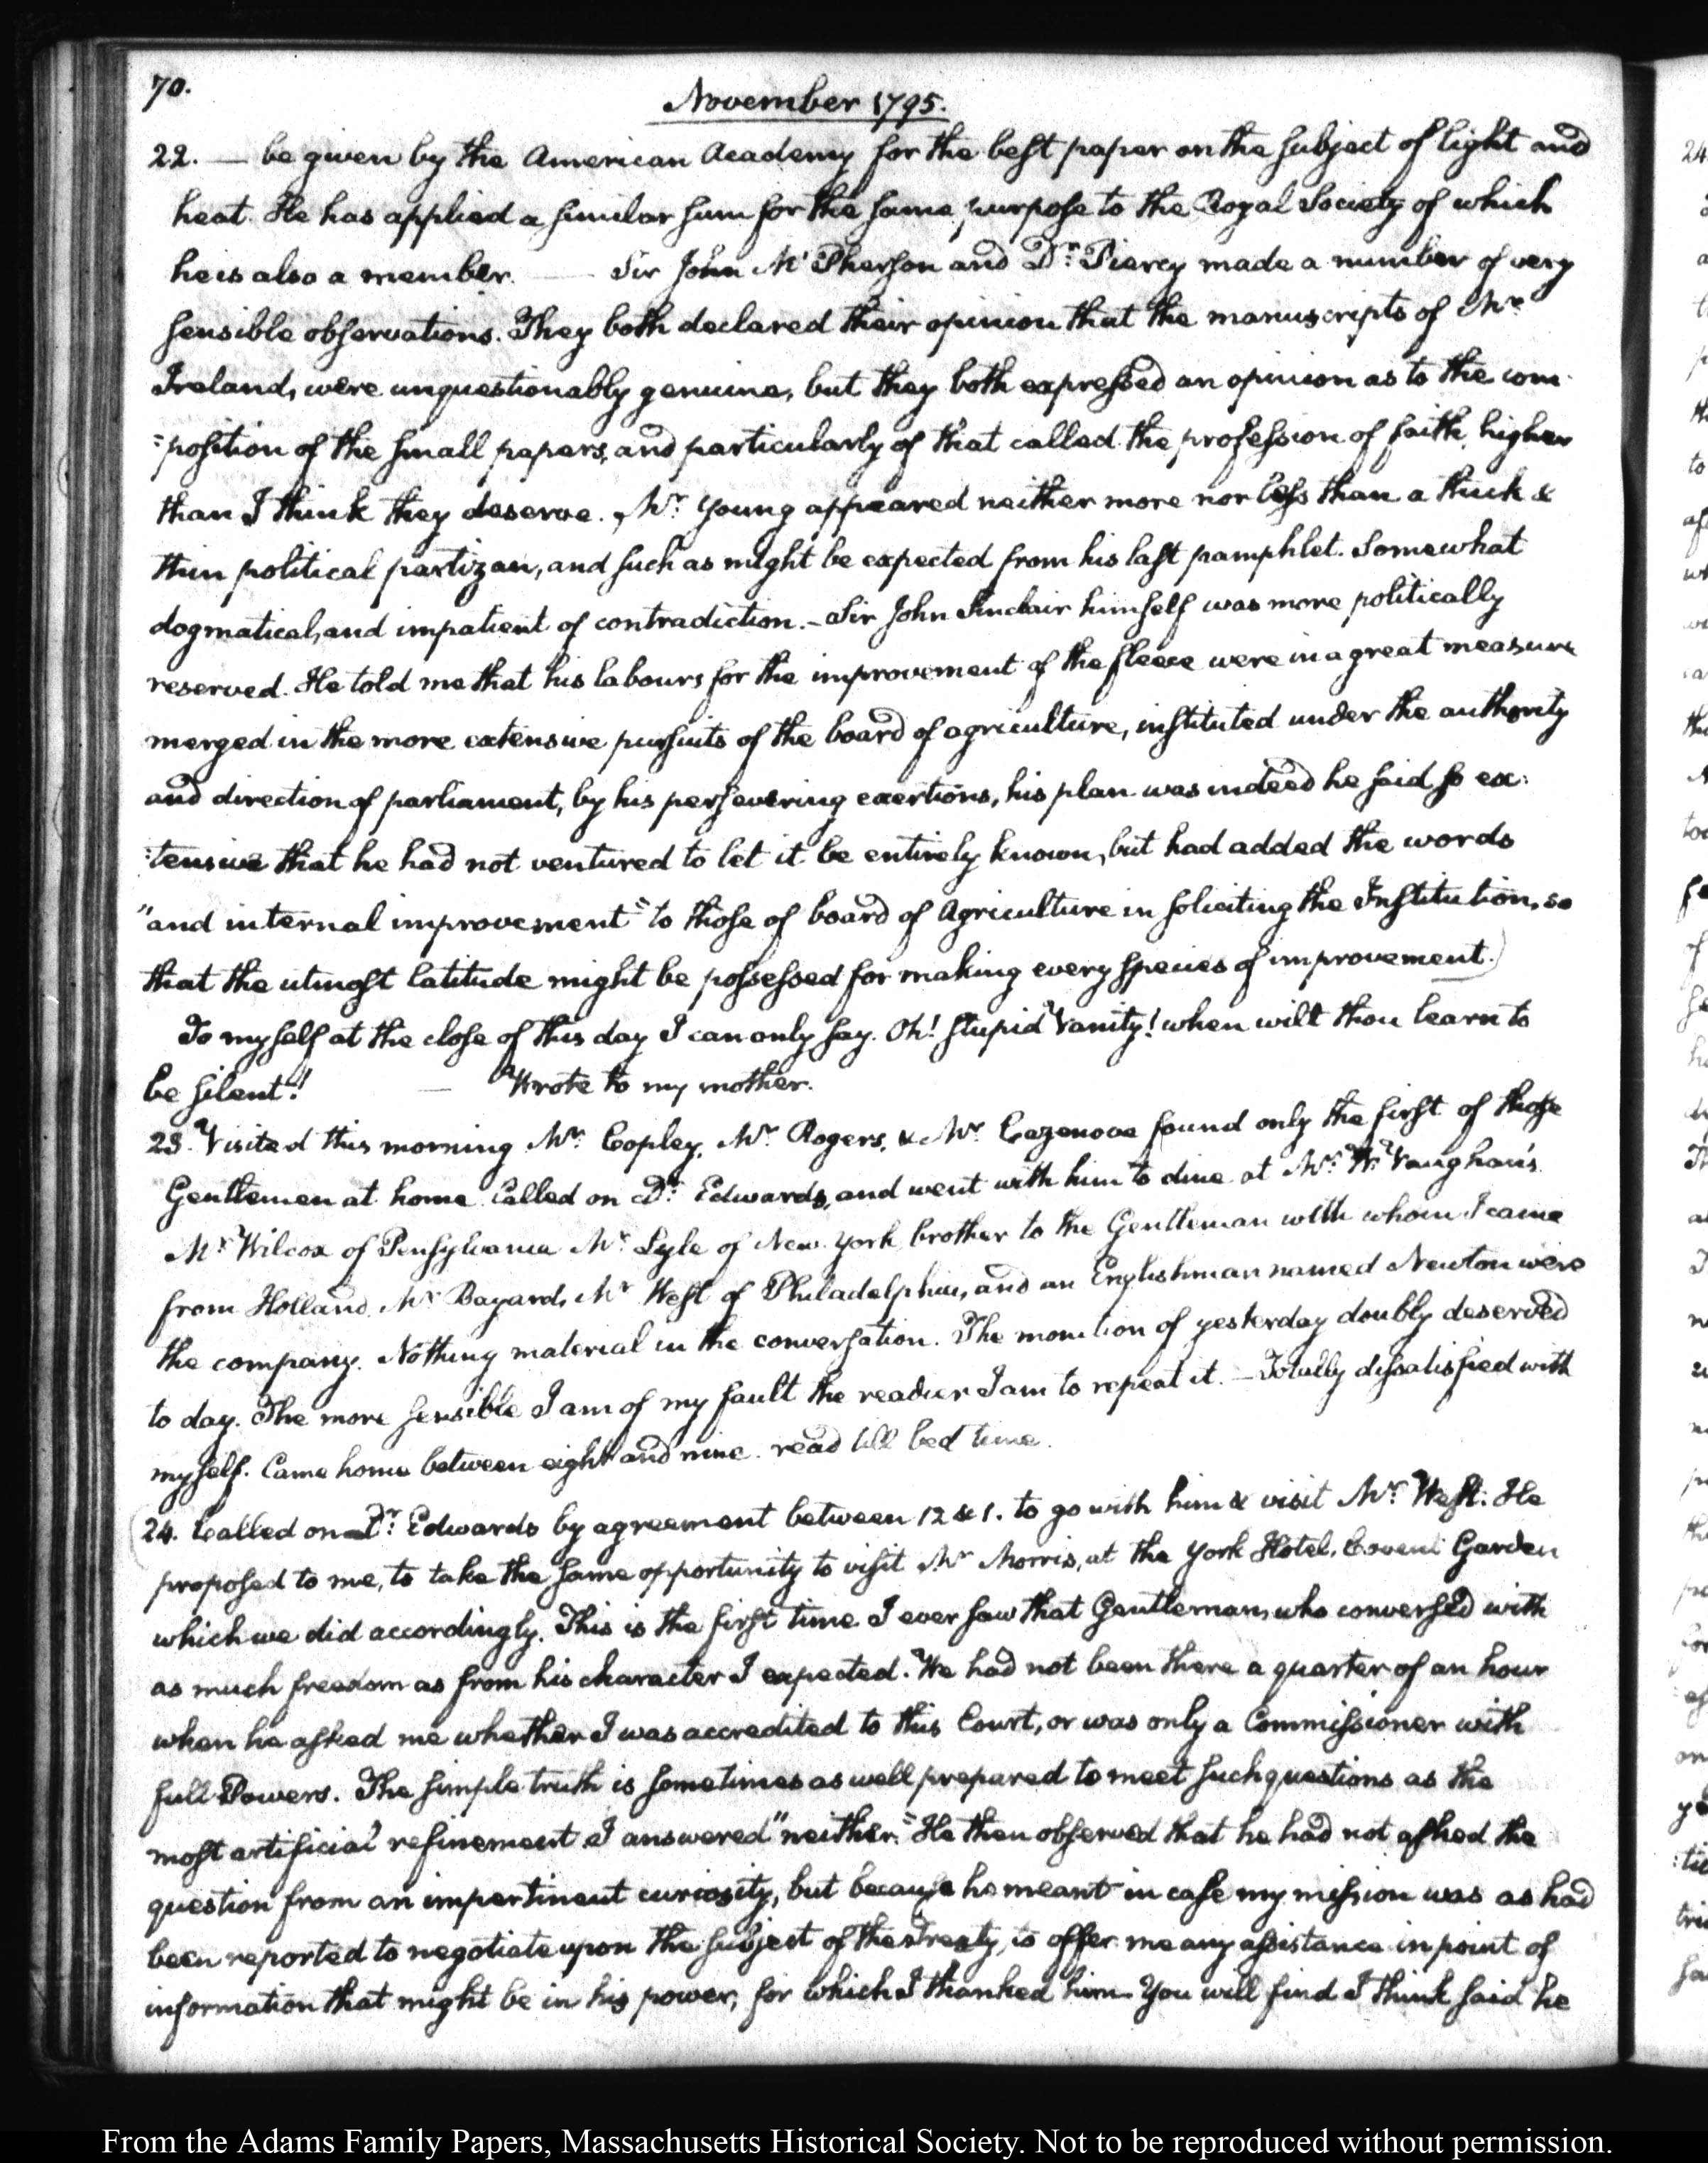 70.
November 1795.
22. — be given by the American Academy for the best paper on the subject of light and
heat. He has applied a similar sum for the same purpose to the Royal Society of which
he is also a member. — Sir John Mc Pherson and Dr. Piercy made a number of very
sensible observations. They both declared their opinion that the manuscripts of Mr
Ireland, were unquestionably genuine, but they both expressed an opinion as to the com-
=position of the small papers, and particularly of that called the profession of faith, higher
than I think they deserve. Mr. Young appeared neither more nor less than a thick &
thin political partizan, and such as might be expected from his last pamphlet. Somewhat
dogmatical, and impatient of contradiction. — Sir John Sinclair himself was more politically
reserved. He told me that his labours for the improvement of the fleece were in a great measure
merged in the more extensive pursuits of the board of agriculture, instituted under the authority
and direction of parliament, by his persevering exertions, his plan was indeed he said so ex:
:tensive that he had not ventured to let it be entirely known, but had added the words
"and internal improvement" to those of board of Agriculture in soliciting the Institution, so
that the utmost latitude might be possessed for making every species of improvement.)
To myself at the close of this day I can only say. Oh! stupid Vanity! when wilt thou learn to
be silent! — Wrote to my mother.
23. Visited this morning Mr. Copley, Mr. Rogers, & Mr. Cazenove found only the first of those
Gentlemen at home. Called on Dr. Edwards, and went with him to dine at Mr. W. Vaughan's.
Mr. Wilcox of Pensylvania Mr. Lyle of New York, brother to the Gentleman with whom I came
from Holland, Mr. Bayard, Mr West of Philadelphia, and an Englishman named Newton were
the company. Nothing material in the conversation. The monition of yesterday doubly deserved
to day. The more sensible I am of my fault the readier I am to repeat it. — Totally dissatisfied with
myself. Came home between eight and nine. read till bed time.
24. Called on Dr. Edwards by agreement between 12 & 1. to go with him & visit Mr. West. He
proposed to me, to take the same opportunity to visit Mr Morris, at the York Hotel, Covent Garden
which we did accordingly. This is the first time I ever saw that Gentleman, who conversed with
as much freedom as from his character I expected. We had not been there a quarter of an hour
when he asked me whether I was accredited to this Court, or was only a Commissioner with
full Powers. The simple truth is sometimes as well prepared to meet such questions as the
most artificial refinement I answered "neither." He then observed that he had not asked the
question from an impertinent curiosity, but because he meant in case my mission was as had
been reported to negotiate upon the subject of the treaty, to offer me any assistance in point of
information that might be in his power, for which I thanked him. You will find I think said he
From the Adams Family Papers, Massachusetts Historical Society. Not to be reproduced without permission.